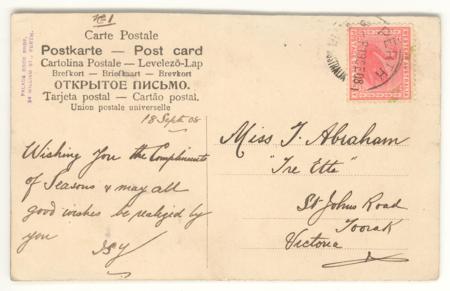 No 1
Carte Postale
Postkarte — Post card
Cartolina Postale — Levelező-Lap
Brefkort — Briefkaart — Brevkort
ОТКРЫТОЕ ПИСЬМО.
Tarjeta postal — Cartão postal.
Union postale universelle
18 Sept. 08
Wishing You the Compliments
of Seasons & may all
good wishes be realized by
you
PERTH
Miss J. Abraham
"Tre Etta"
St Johns Road
Toorak
Victoria